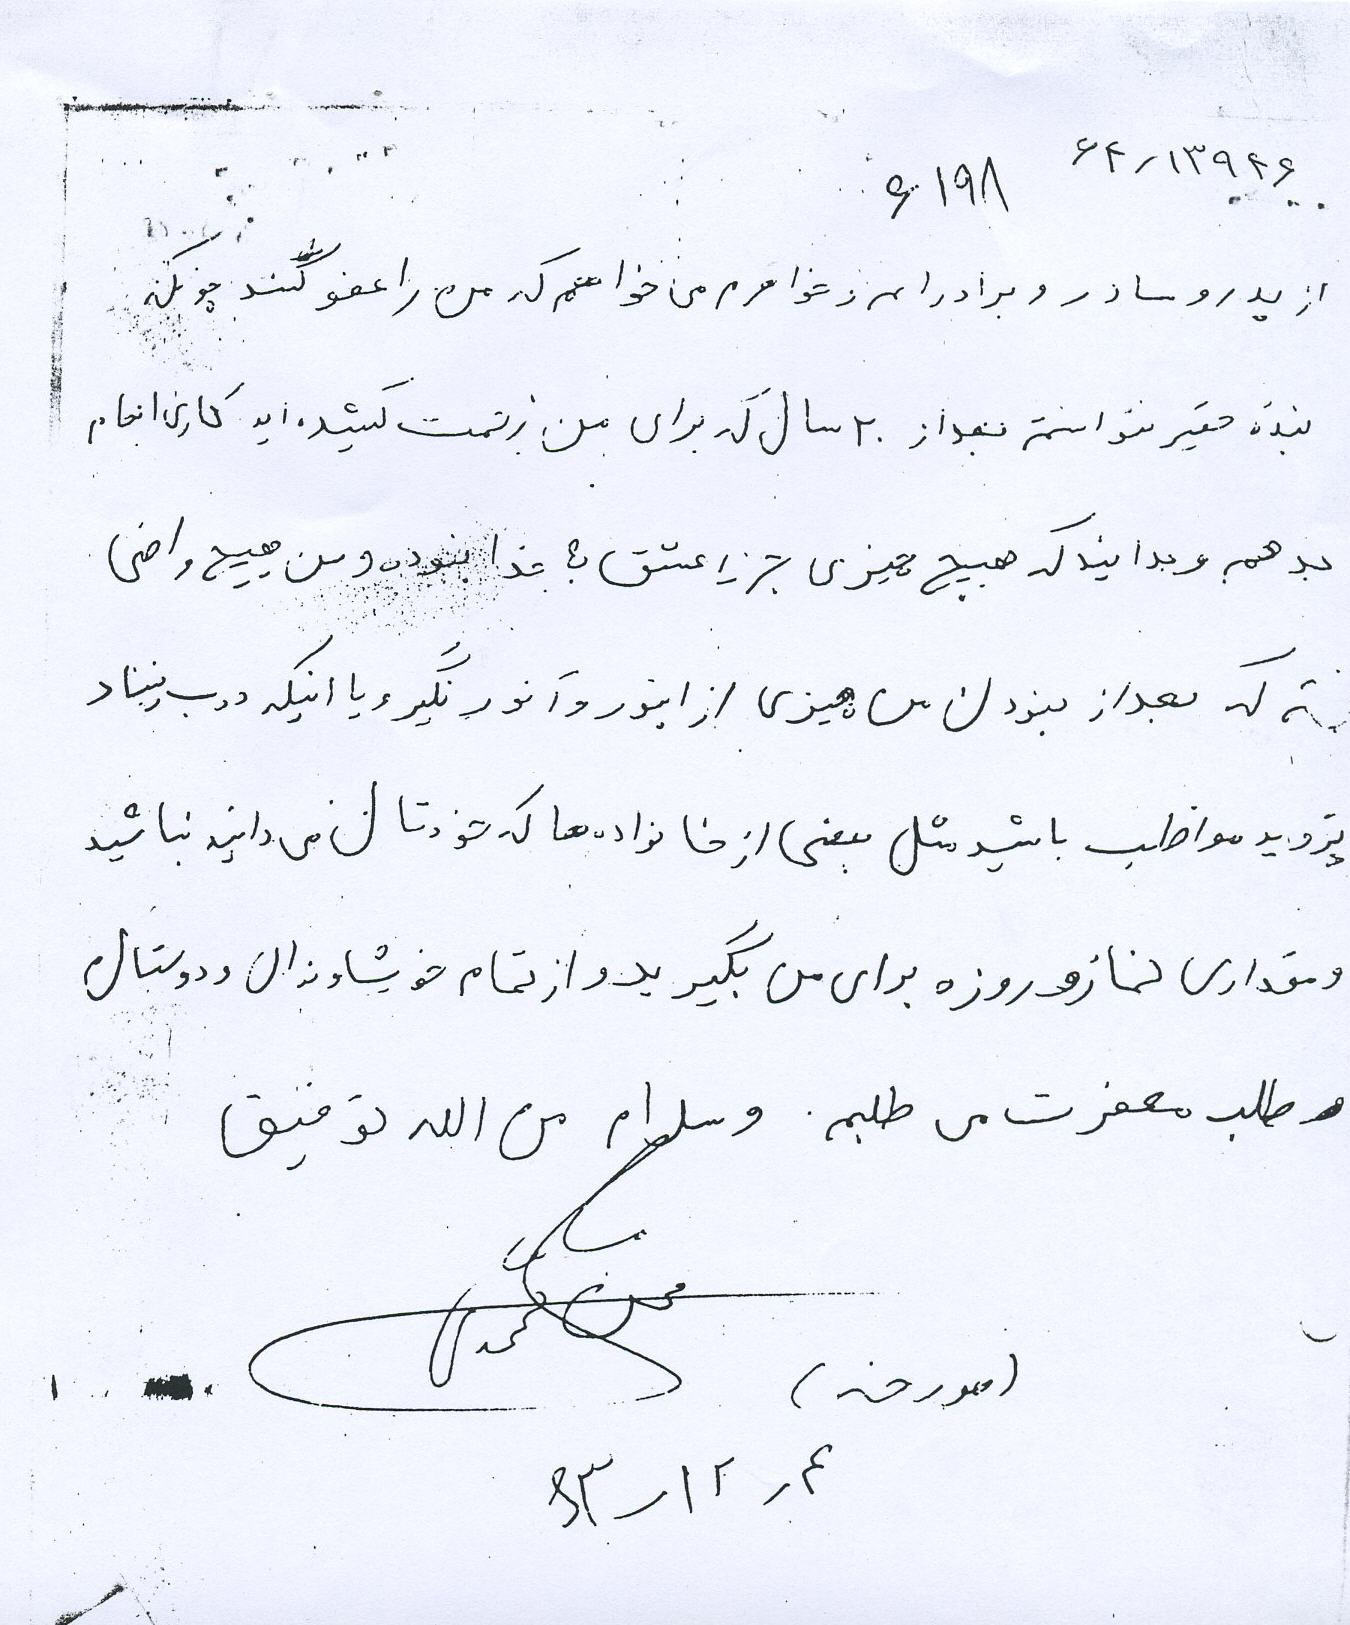 ۶۴/۱۳۹۴۶
۶۱۹۸
از پدر و مادر و برادرام و خواهرم می خواهم که من را عفو کنند چونکه
بنده حقیر نتوانسته بعداز ۲۰ سال که برای من زحمت کشیده اید کاری انجام
بدهم و بدانید که هیچ چیزی جز عشق به خدا نبوده و من هیچ راضی
که بعداز نبودن من چیزی از اینور و آنور نگیرید یا اینکه درب بنیاد
بروید مواظب باشید مثل بعضی از خانواده ها که خودتان می دانید نباشید
و مقداری نماز و روزه برای من بگیرید و از تمام خویشاوندان و دوستان
طلب مغفرت می طلبم. وسلام من الله توفیق
محمدی
۹۳/۱۲/۴